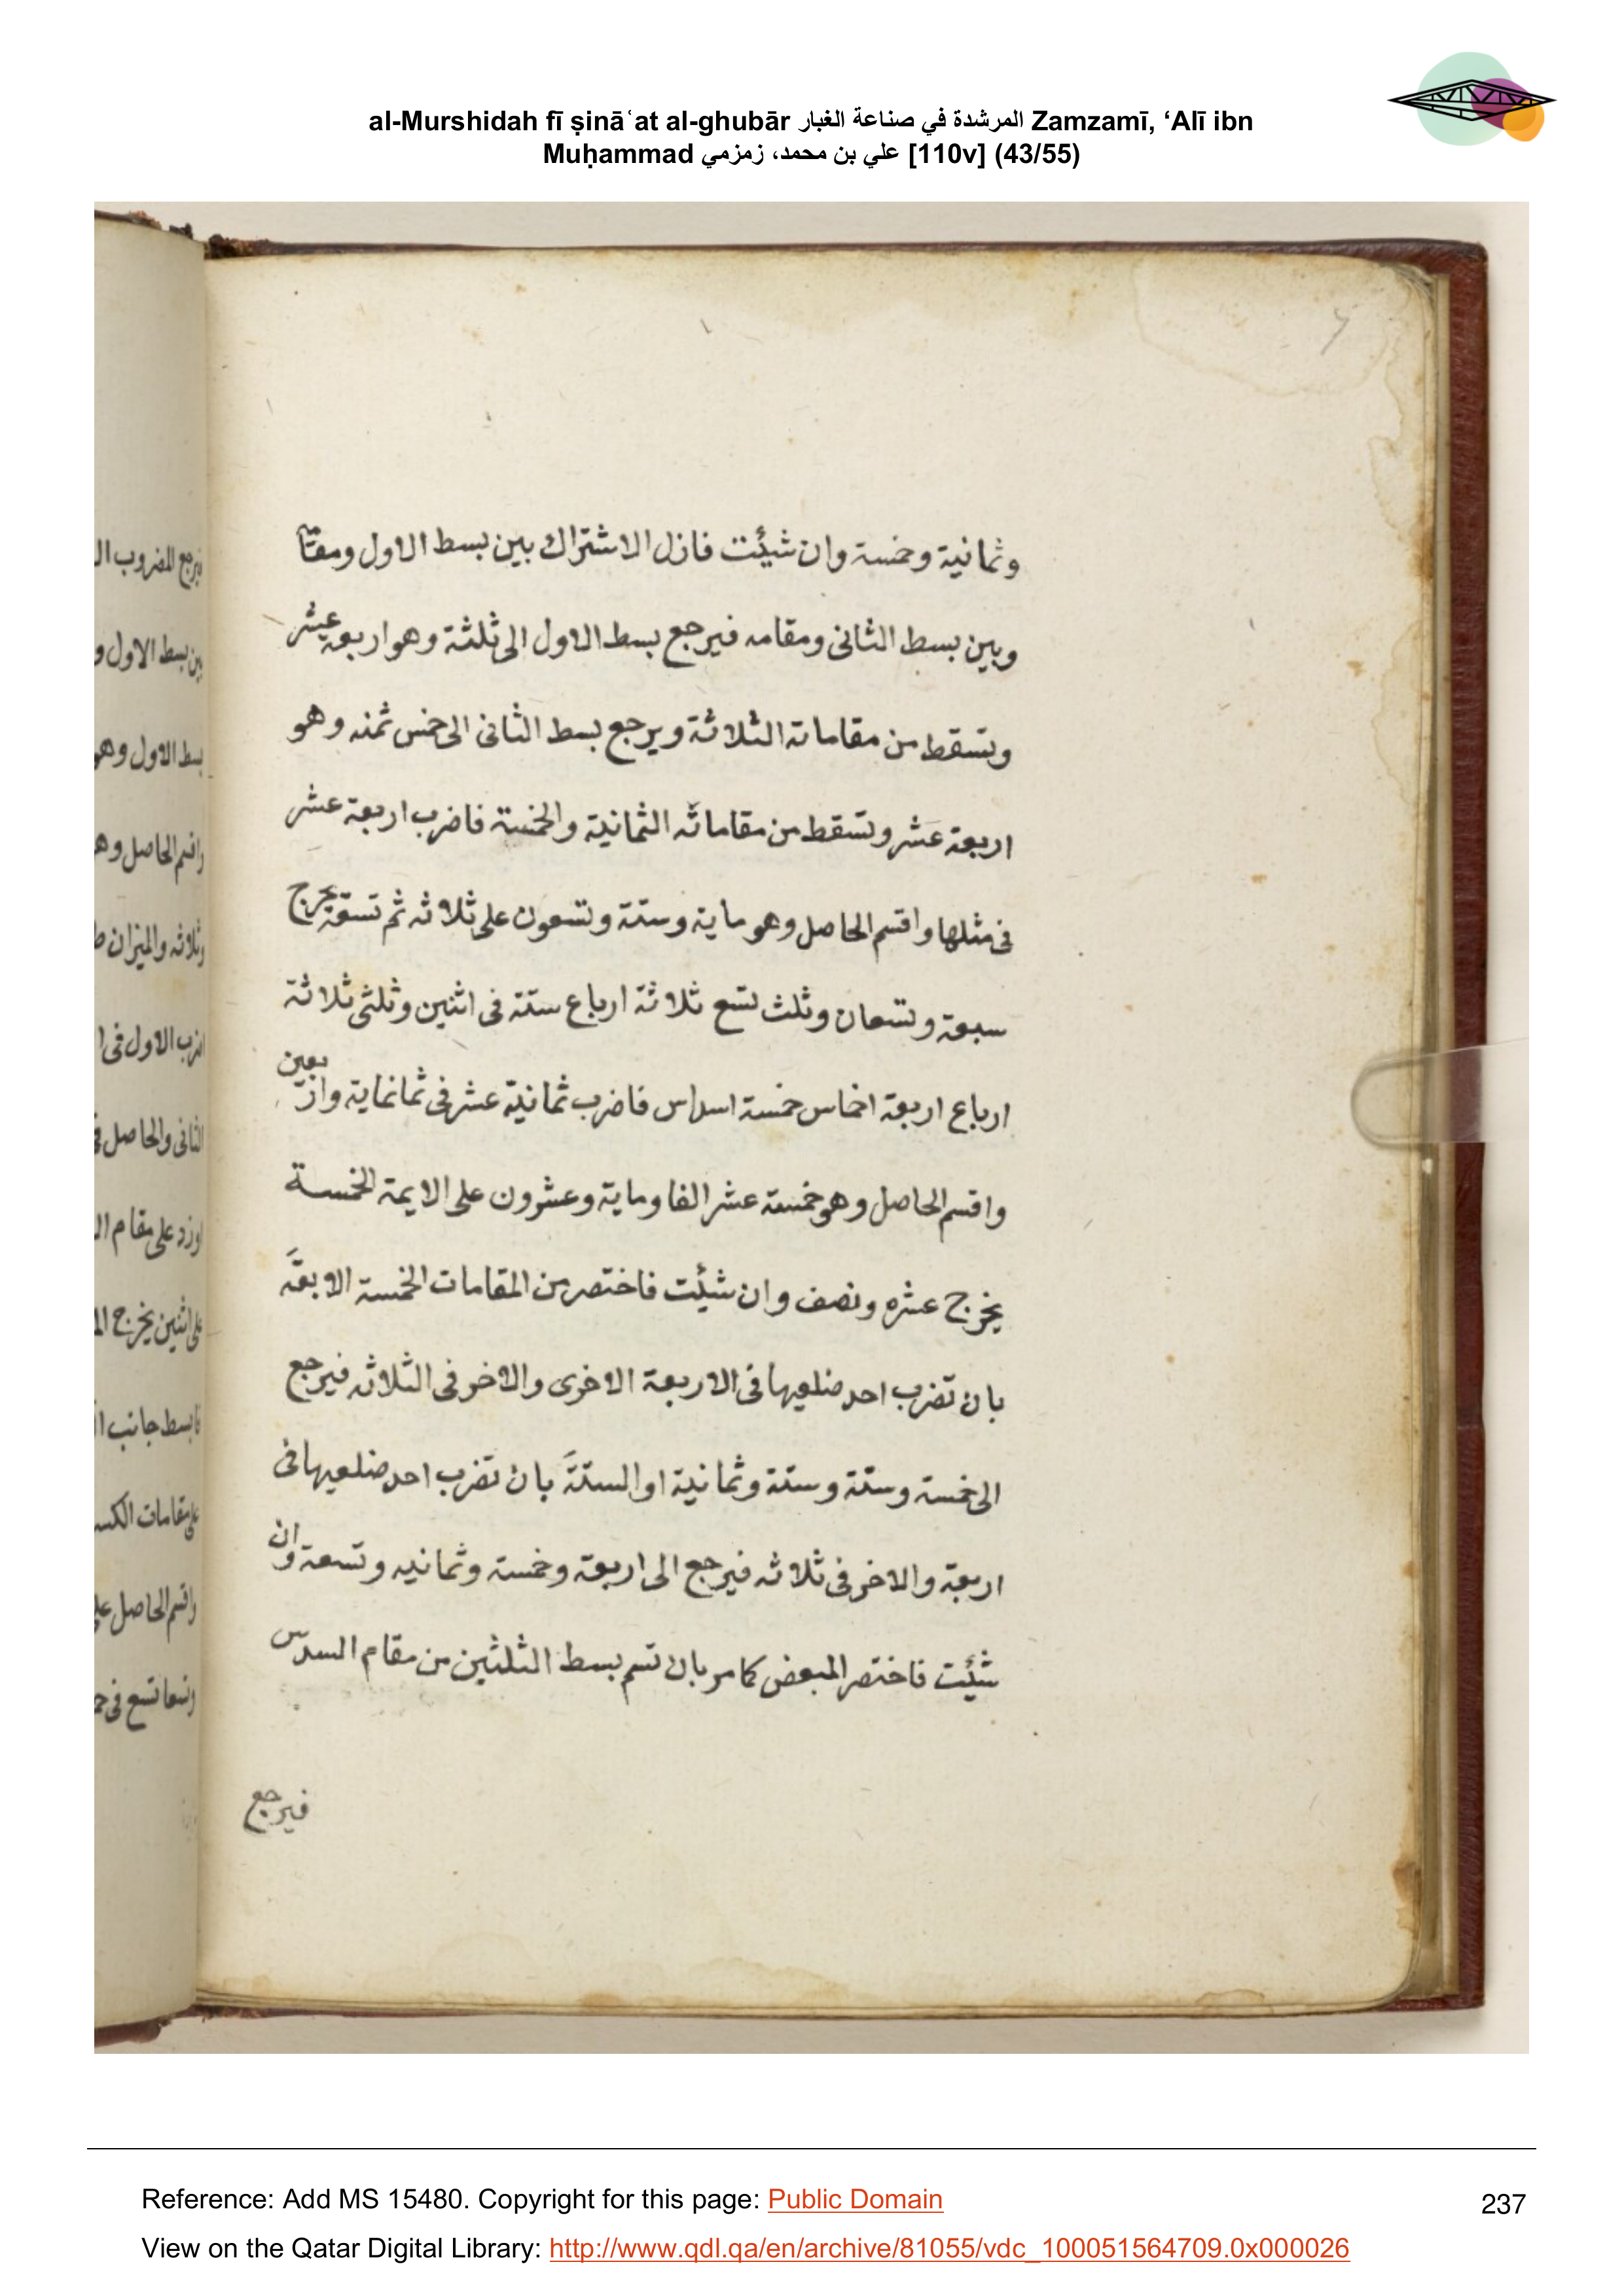 al-Murshidah fī ṣināʿat al-ghubār المرشدة في صناعة الغبار Zamzamī, ‘Alī ibn
Muḥammad علي بن محمد، زمزمي [110v] (43/55)
وثمانية وخمسة وان شيئت فازل الاشتراك بين بسط الاول ومقامه
وبين بسط الثانى ومقامه فيرجع بسط الاول الى ثلثة وهو اربعة عشر
وتسقط من مقاماته الثلاثة ويرجع بسط الثانى الى خمس ثمنه وهو
اربعة عشر وتسقط من مقاماته الثمانية والخمسة فاضرب اربعة عشر
فى مثلها واقسم الحاصل وهو ماية وستة وتسعون على ثلاثه ثم تسعة يخرج
سبعة وتسعان وثلث تسع ثلاثة ارباع ستة فى اثنين وثلثى ثلاثة
ارباع اربعة اخماس خمسة اسداس فاضرب ثمانية عشر فى ثمانماية واربعين
واقسم الحاصل وهو خمسة عشر الفا وماية وعشرون على الايمة الخمسة
يخرج عشره ونصف وان شيئت فاختصر من المقامات الخمسة الاربعة
بان تضرب احد ضلعيها فى الاربعة الاخرى والاخر فى الثلاثه فيرجع
الى خمسة وستة وستة وثمانية او الستة بان تضرب احد ضلعيها فى
اربعة والاخر فى ثلاثه فيرجع الى اربعة وخمسة وثمانيه وتسعة وان
شيئت فاختصر المبعض كما مر بان تسم بسط الثلثين من مقام السدس
فيرجع
فيرجع المضروب ال
بين بسط الاول و
بسط الاول وهو
واقسم الحاصل وه
وثلاثه والميزان ط
اضرب الاول فى ا
الثانى والحاصل ف
اوزد على مقام ال
على اثنين يخرج ال
فابسط جانب ا
على مقامات الكس
واقسم الحاصل على
وتسعا تسع فى خ
Reference: Add MS 15480. Copyright for this page: Public Domain
237
View on the Qatar Digital Library: http://www.qdl.qa/en/archive/81055/vdc_100051564709.0x000026